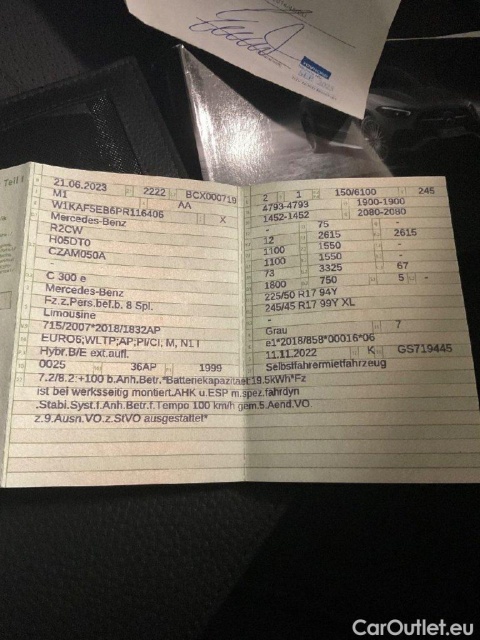 Teil I
21.06.2023 2222 BCX000719
M1 AA
W1KAF5EB6PR116406 X
Mercedes-Benz
R2CW
H05DT0
CZAM050A
-
C 300 e
Mercedes-Benz
Fz.z.Pers.bef.b. 8 Spl.
Limousine
715/2007*2018/1832AP
EURO6;WLTP;AP;PI/CI; M, N1 I
Hybr.B/E ext.aufl.
0025 36AP 1999
7.2/8.2:+100 b.Anh.Betr.*Batteriekapazitaet:19.5kWh*Fz
ist bei werksseitig montiert.AHK u.ESP m.spez.fahrdyn
.Stabi.Syst.f.Anh.Betr.f.Tempo 100 km/h gem.5.Aend.VO.
z.9.Ausn.VO.z.StVO ausgestattet*
2 1 150/6100 245
4793-4793 1900-1900
1452-1452 2080-2080
- 75 - -
12 2615 2615
1100 1550 -
1100 1550 -
73 3325 67
1800 750 5 -
225/50 R17 94Y
245/45 R17 99Y XL
-
Grau 7
e1*2018/858*00016*06
11.11.2022 K GS719445
Selbstfahrermietfahrzeug
CarOutlet.eu